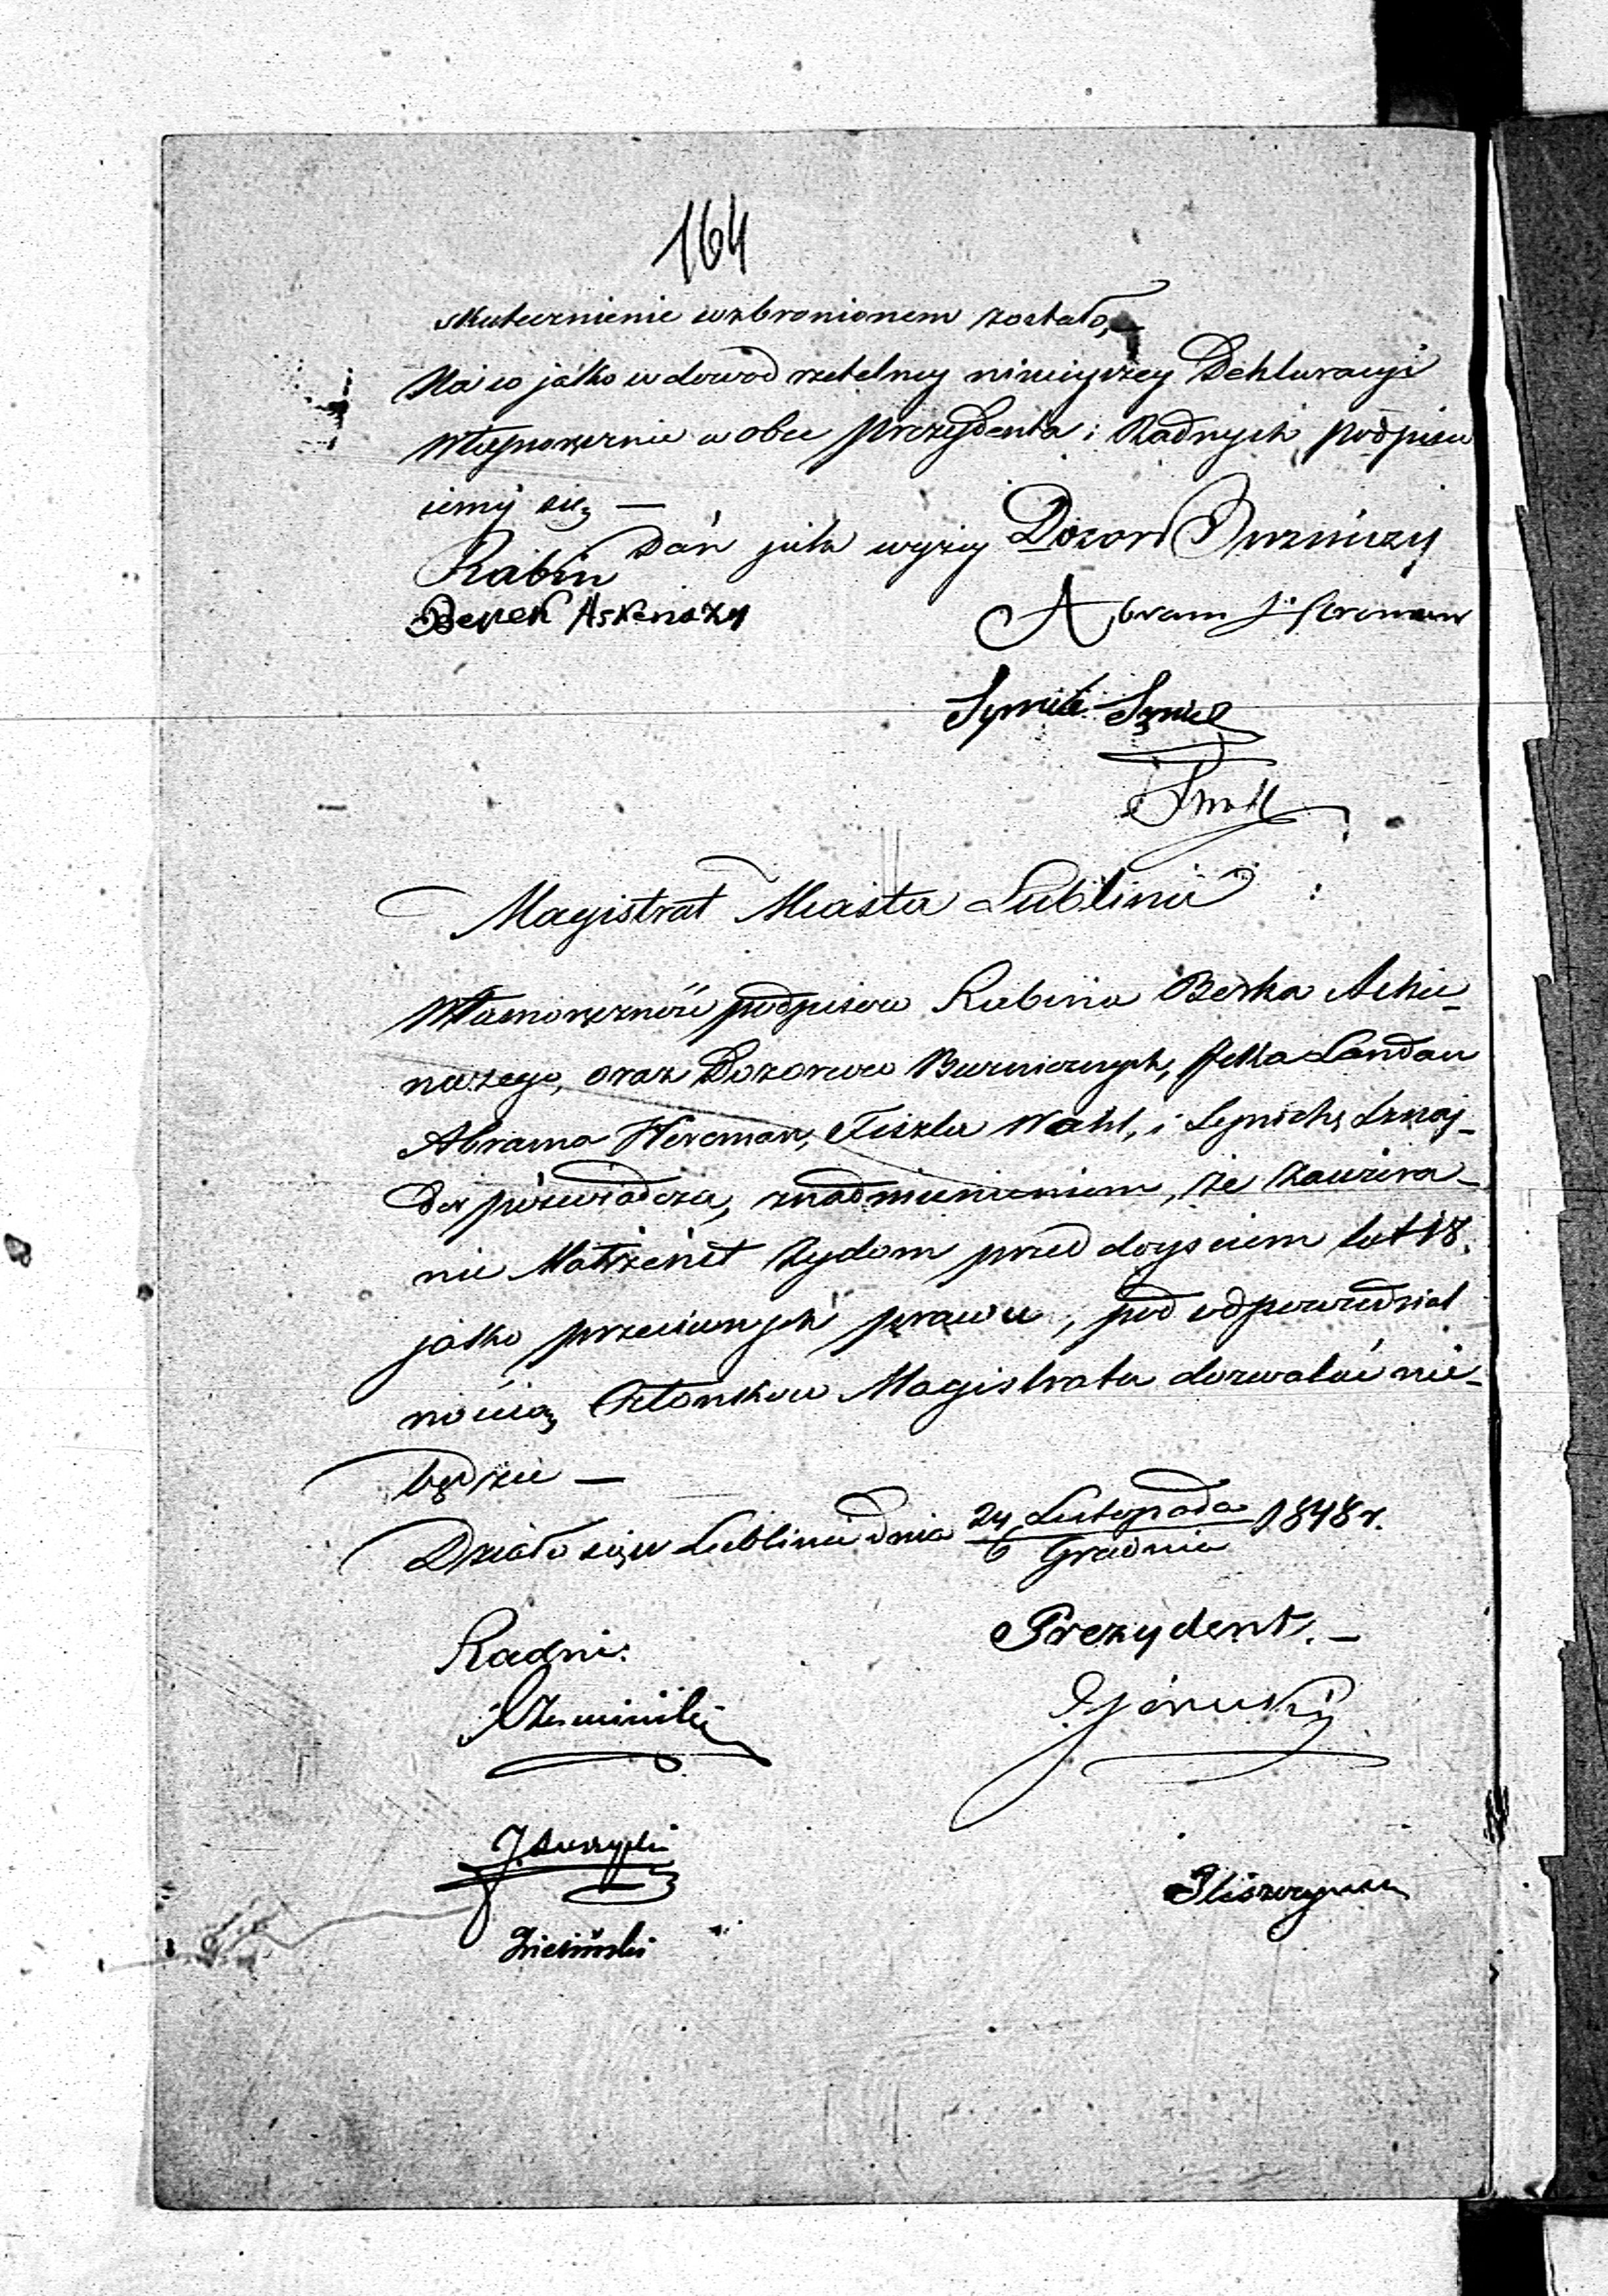 164
skutecznienie wzbronionem zostało,
Na co jako w dowod rzetelney ninieyszey Deklaracyi
własnoręcznie w obec Prezydenta i Radnych podpisu
iemy się —
Dań jak wyżey Dozor Bużniczy
Rabin
Berek Askenazy
Abram Herzman
Symcha
Magistrat Miasta Lublina
Własnoręczność podpisów Rabina Berka Aske-
nazego, oraz Dozorców Bużnicznych, Jcka Landau
Abrama Hercman, Fiszla Wahl, i Symchę Sznaj-
dra poświadcza, z nadmienieniem, że zawiera-
nie Małżeństw Żydom przed dojściem lat 18.
jako przeciwnych prawu, pod odpowiedzial
nością Członków Magistratu dozwalać nie-
będzie —
Działo się w Lublinie dnia 24 Listopada / 6 Grudnia 1848 r.
Prezydent. —
Radni:
Zieliński